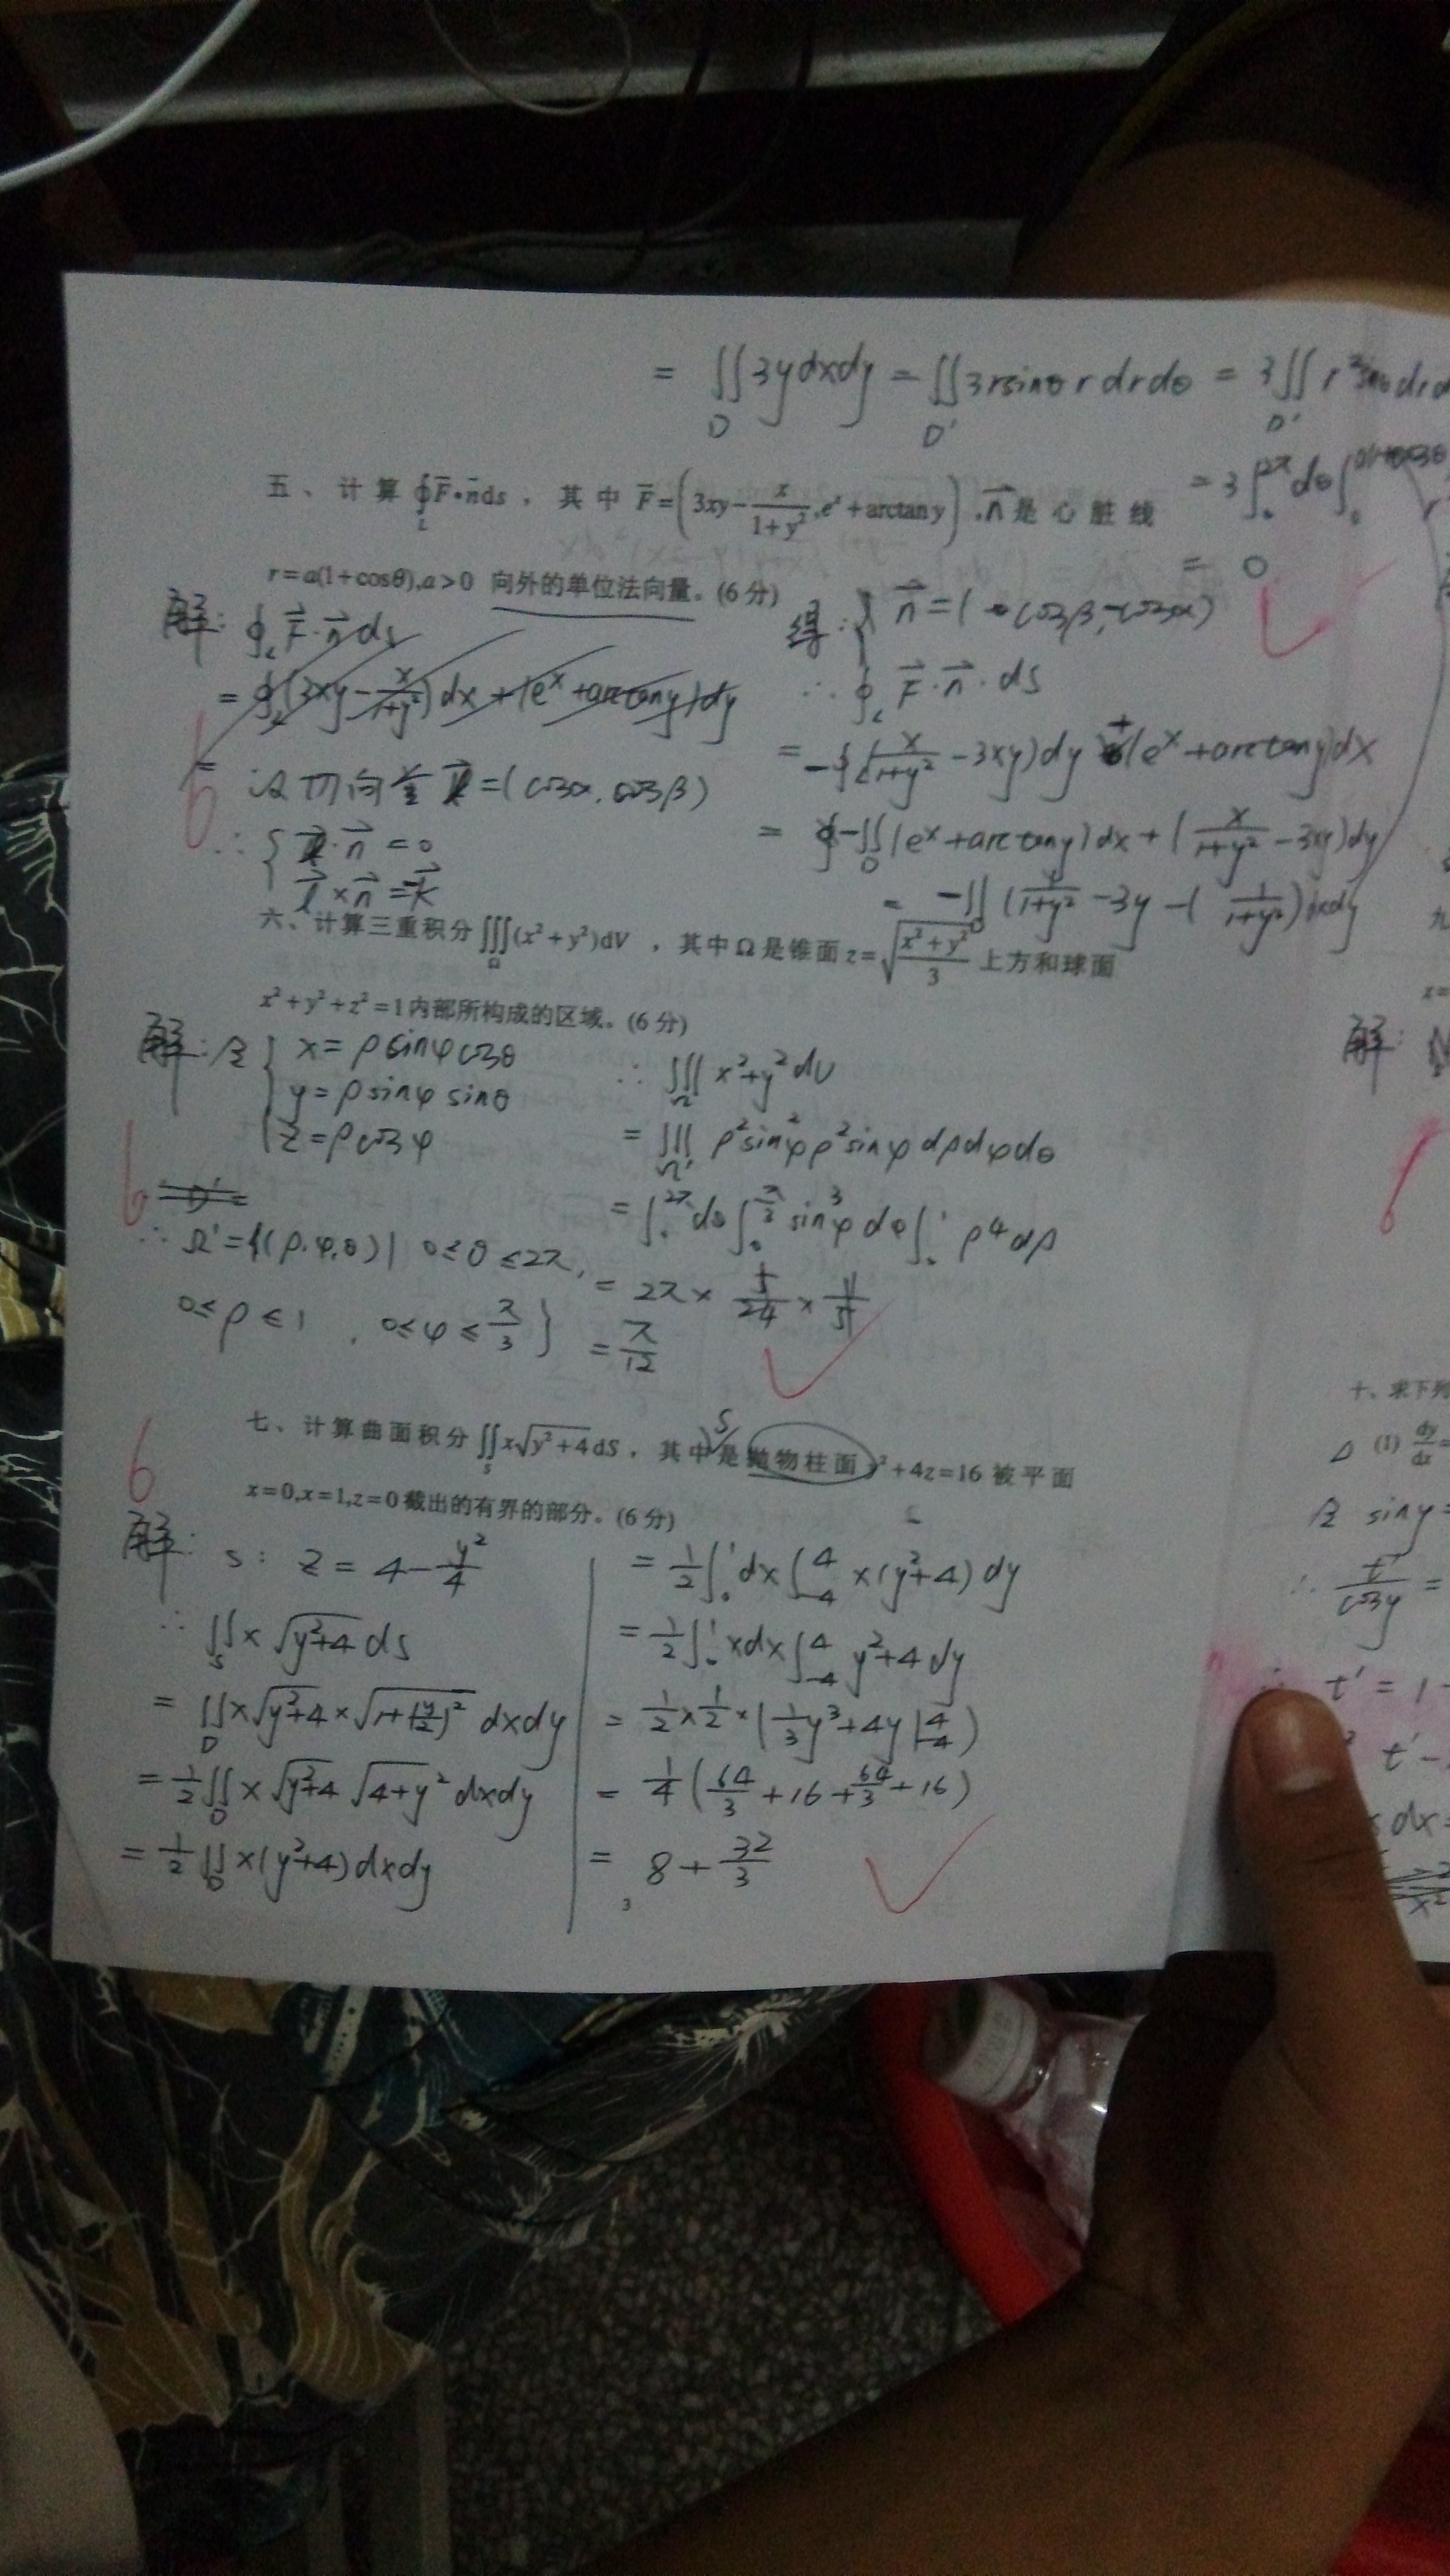 = ∬_D 3y dxdy = ∬_D' 3r sinθ r dr dθ = 3∬_D' r² sinθ dr d
= 3∫₀^2π dθ ∫₀
= 0
五、计算 ∮_L F̄·n̄ ds,其中 F̄=(3xy−x/(1+y²), eˣ+arctan y),n⃗是心脏线
r=a(1+cosθ),a>0 向外的单位法向量。(6分)
解: ∮_L F⃗·n⃗ ds
= ∮_L (3xy−x/(1+y²))dx+(eˣ+arctany)dy
=
设切向量 l⃗=(cosα, cosβ)
∴ { l⃗·n⃗ =0
l⃗×n⃗ =−k⃗
得: { n⃗=(cosβ,−cosα)
∴ ∮_L F⃗·n⃗·ds
= −∮_L (x/(1+y²)−3xy)dy+(eˣ+arctany)dx
= −∬_D (eˣ+arctany)dx+(x/(1+y²)−3xy)dy
= −∬_D (1/(1+y²)−3y−(1/(1+y²)))dxdy
6
六、计算三重积分 ∭_Ω (x²+y²)dV ,其中Ω是锥面 z=√((x²+y²)/3) 上方和球面
x²+y²+z²=1内部所构成的区域。(6分)
解:令{ x=ρsinφcosθ
y=ρsinφ sinθ
z=ρcosφ
∴ Ω'={(ρ,φ,θ)| 0≤θ≤2π,
0≤ρ≤1 , 0≤φ≤π/3 }
∴ ∭_Ω x²+y² dV
= ∭_Ω' ρ²sin²φρ²sinφ dρdφdθ
= ∫₀^2π dθ ∫₀^π/3 sin³φ dφ ∫₀^1 ρ⁴dρ
= 2π× 5/24 × 1/5
= π/12
6
七、计算曲面积分 ∬_S x√(y²+4) dS,其中S是抛物柱面 y²+4z=16 被平面
x=0,x=1,z=0截出的有界的部分。(6分)
6
解: S: z = 4−y²/4
∴ ∬_S x √(y²+4) ds
= ∬_D x√(y²+4)×√(1+(y/2)²) dxdy
= 1/2∬_D x √(y²+4) √(4+y²) dxdy
= 1/2∬_D x(y²+4)dxdy
= 1/2∫₀^1 dx∫₋₄^4 x(y²+4)dy
= 1/2∫₀^1 xdx∫₋₄^4 y²+4 dy
= 1/2×1/2×(1/3y³+4y|₋₄^4)
= 1/4(64/3+16+64/3+16)
= 8+32/3
九
x=
解:
6
十、求下列
△ (1) dy/dx=
令 siny=
∴ t'/cosy =
t' = 1-
t'-
dx=